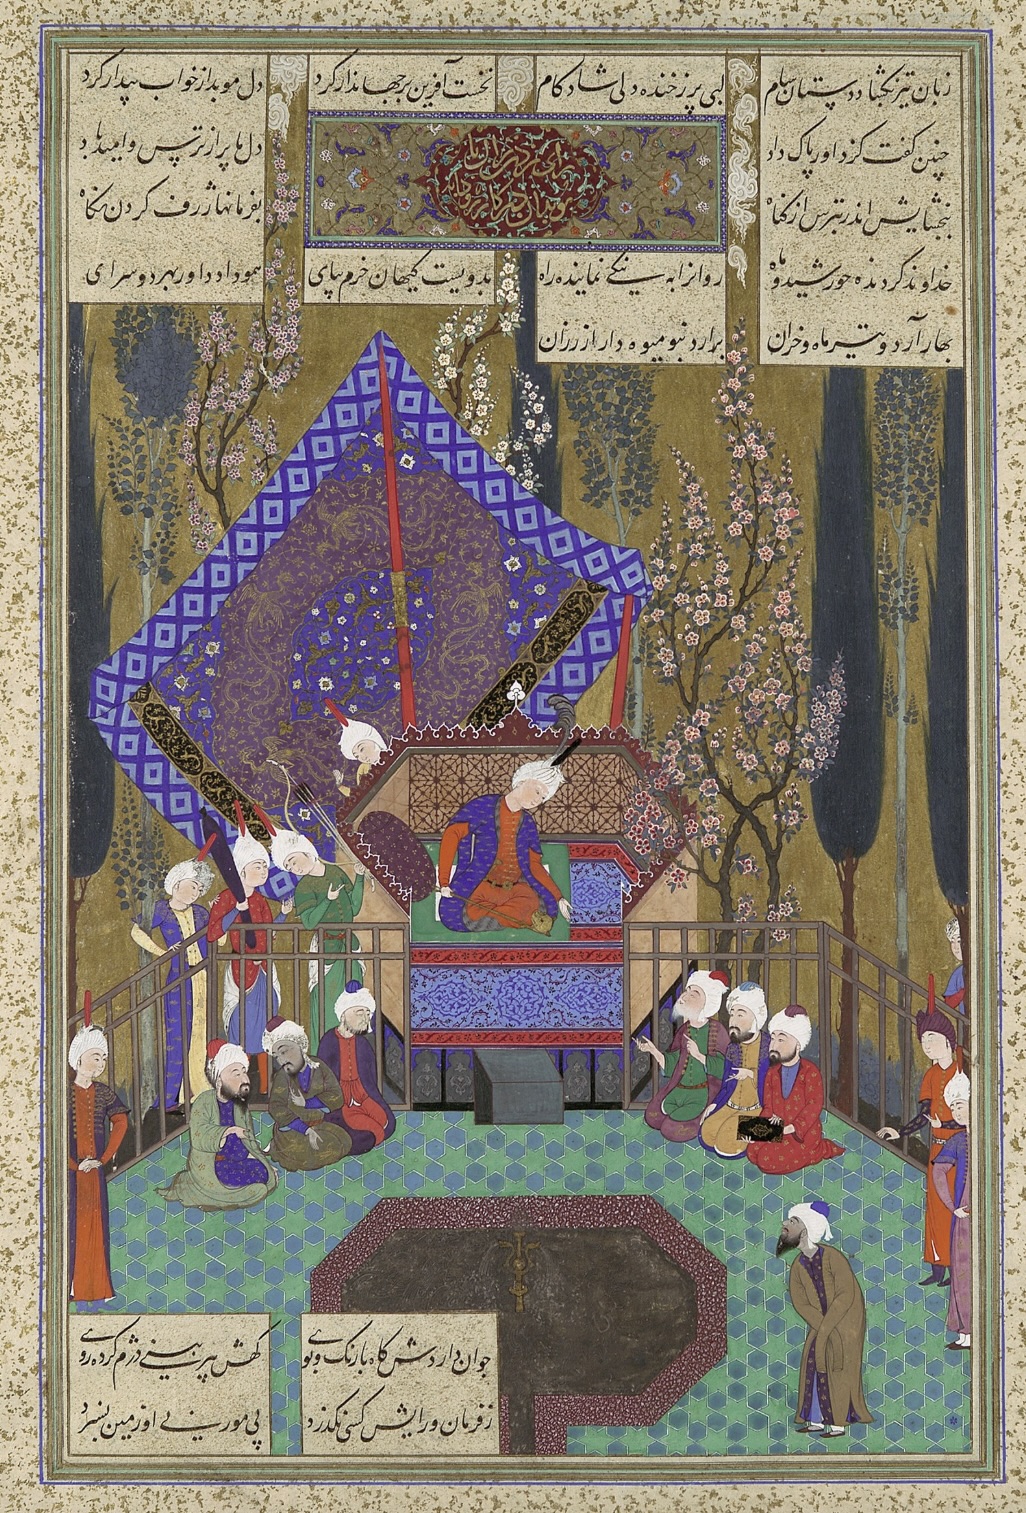 زبان تیز بگشاد دستان سام لبی پر ز خنده دلی شادکام نخست آفرین بر جهاندار کرد دل موبد از خواب بیدار کرد
رای زدن زال با
موبدان در کار رودابه
چنین گفت کز داور پاک داد دل ما پر از ترس و امید باد
ببخشایش اندر بترس از گناه بفرمانها ژرف کردن نگاه
خداوند گردنده خورشید و ماه روانرا به نیکی نماینده راه بدویست کیهان خرم بپای همو داد و داور بهر دو سرای
بهار آرد و تیر ماه و خزان برارد بنو میوه دار از رزان
جوان داردش گاه با رنگ و بوی گهش پیر بینی دژم کرده روی
ز فرمان و رایش کسی نگذرد پی مور بی او زمین نسپرد